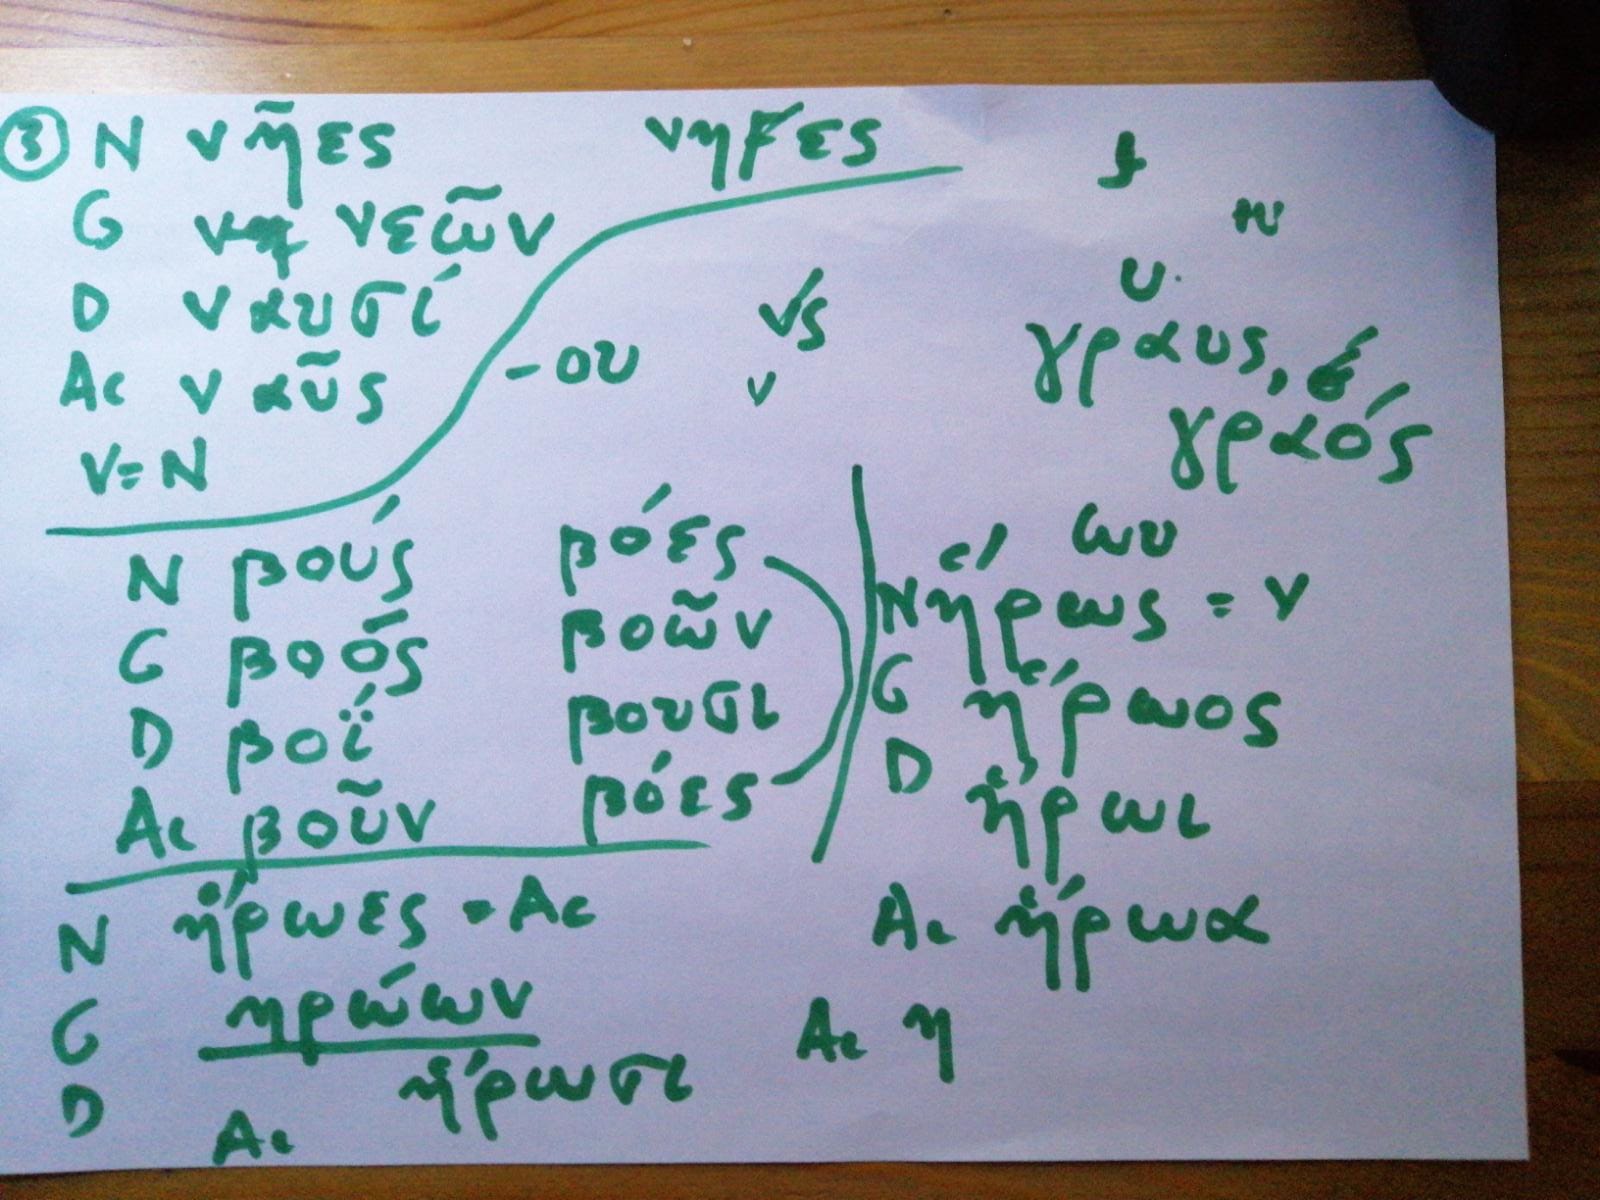 ③ N νῆες νηϝες
G νεῶν
D ναυσί
Ac ναῦς
V=N
-ου
υ.
γραυς,
γραός
N βούς βόες
G βοός βοῶν
D βοΐ βουσι
Ac βοῦν βόες
ωυ
N ἥρως = V
G ἥρωος
D ἥρωι
Ac ἥρωα
Ac η
N ἥρωες = Ac
G ηρώων
D ἥρωσι
Ac